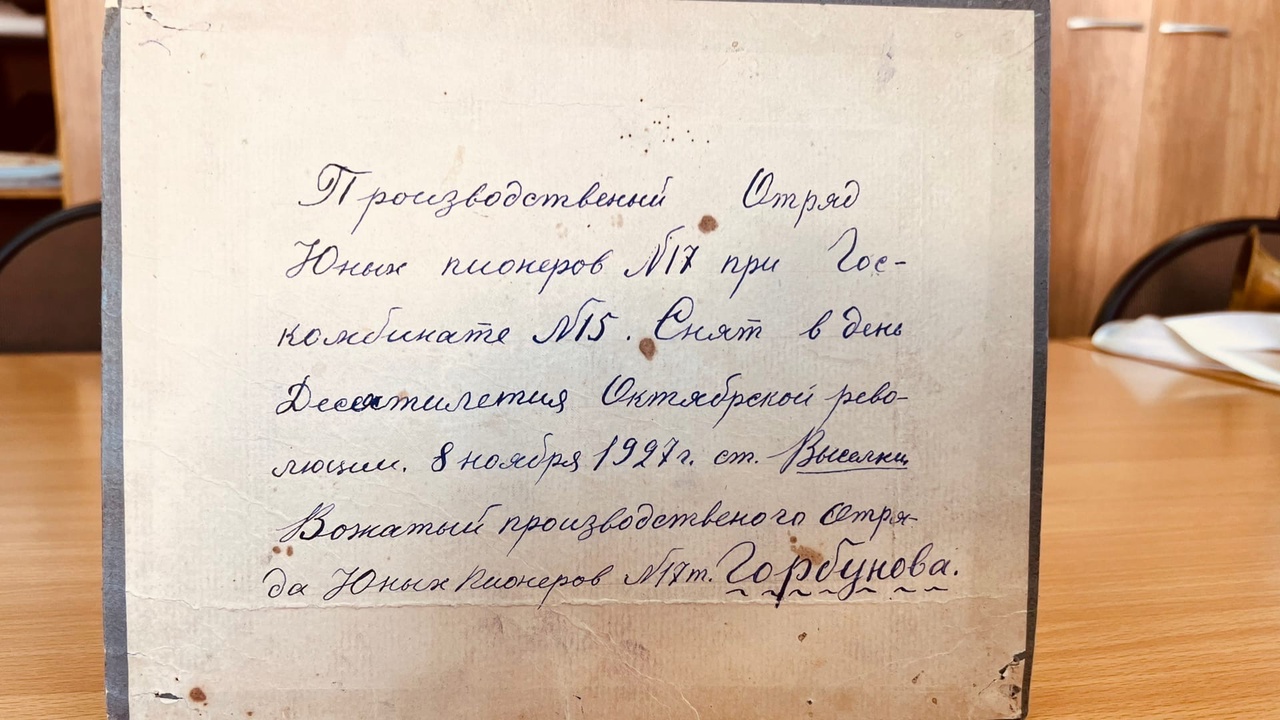 Производственый Отряд
Юных пионеров №17 при Гос-
комбинате №15. Снят в день
Десятилетия Октябрской рево-
люции. 8 ноября 1927 г. ст. Выселки
Вожатый производственого Отря-
да Юных Пионеров №17 т. Горбунова.